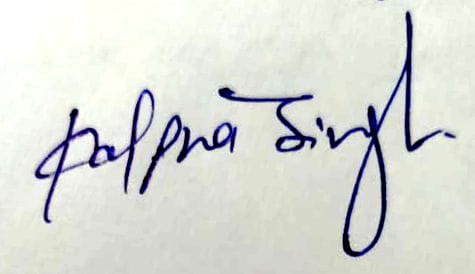 Kalpna Singh.